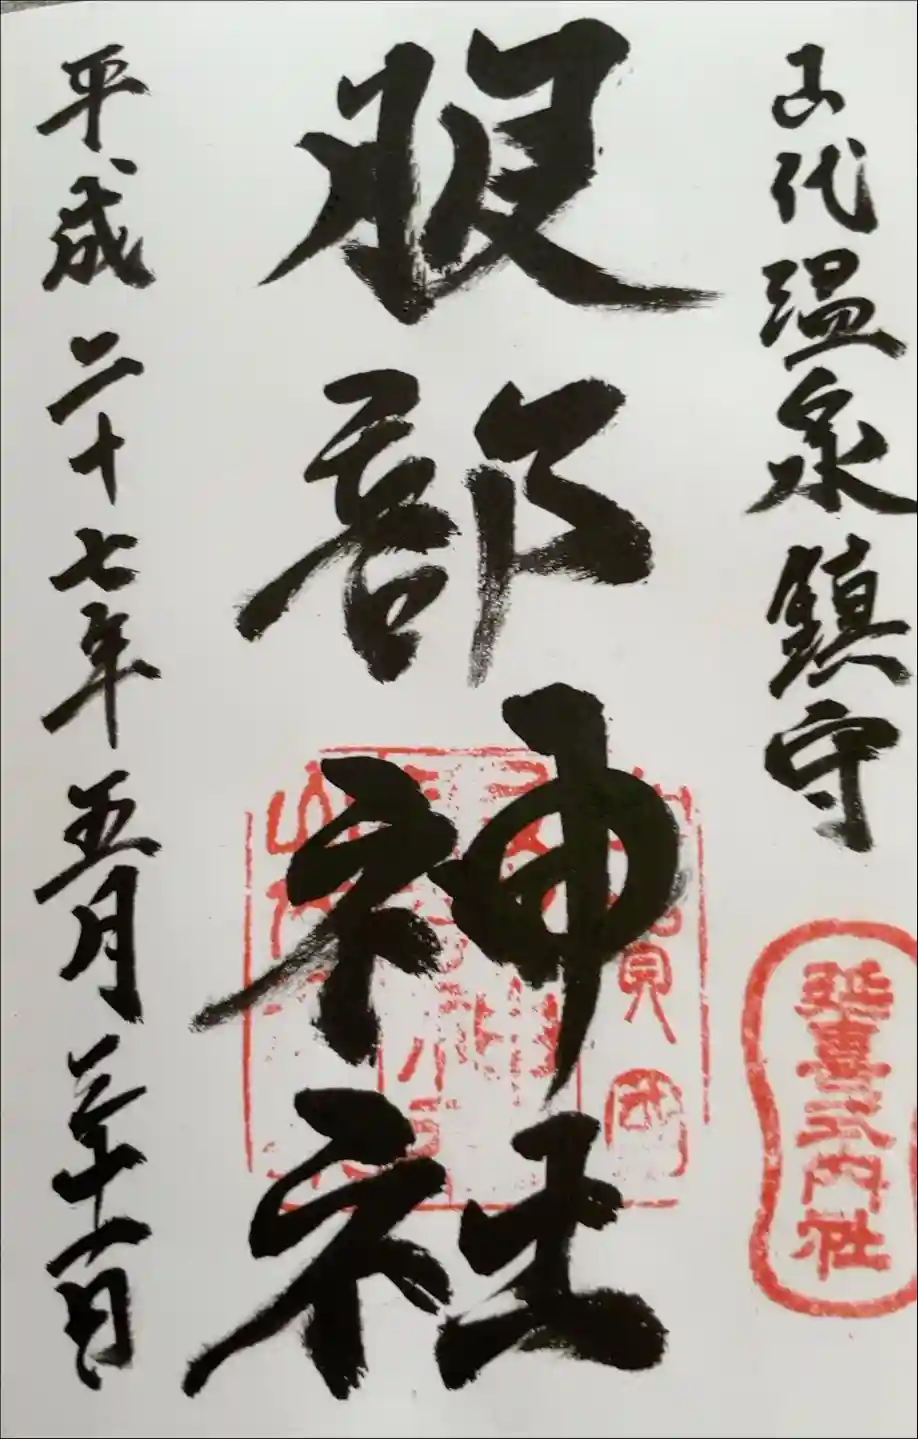 山代温泉鎮守
延喜式内社
服部神社
平成二十七年五月三十一日